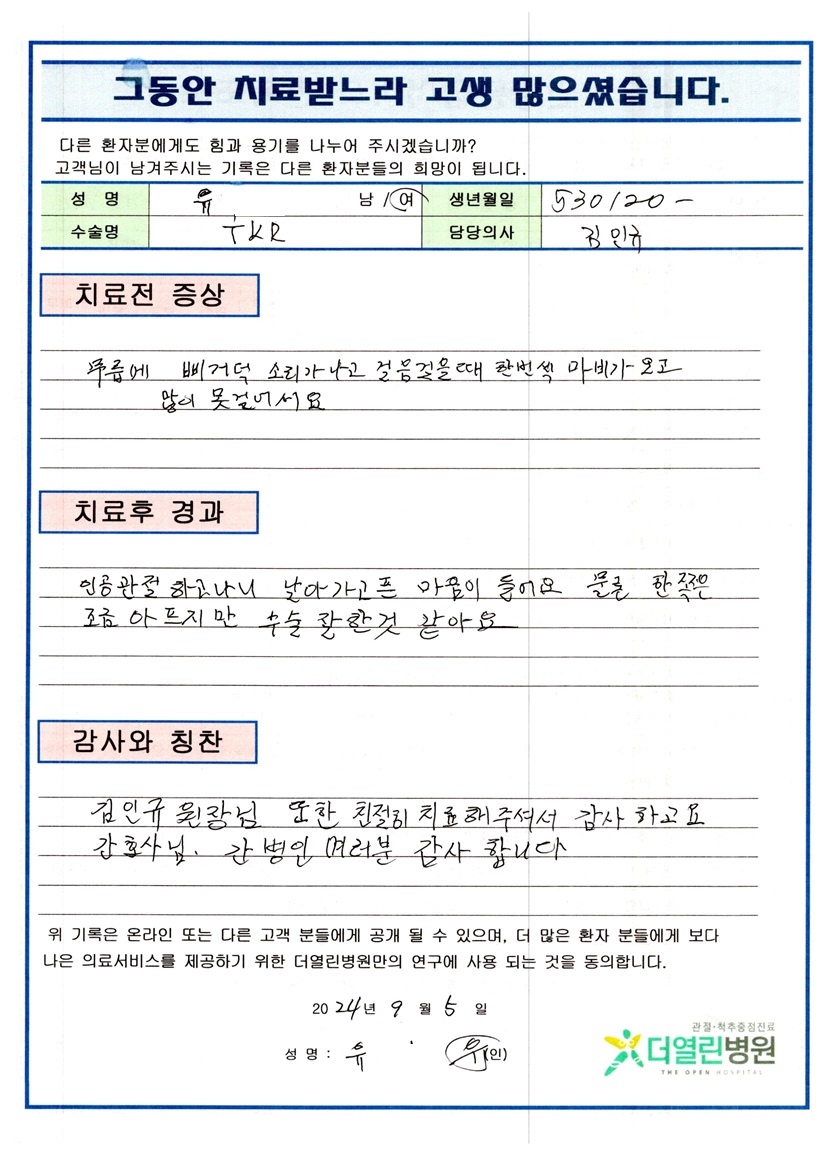 그동안 치료받느라 고생 많으셨습니다.
다른 환자분에게도 힘과 용기를 나누어 주시겠습니까?
고객님이 남겨주시는 기록은 다른 환자분들의 희망이 됩니다.
성 명 유 남 / 여 생년월일 530120-
수술명 TKR 담당의사 김민규
치료전 증상
무릎에 삐거덕 소리가나고 걸음걸을때 한번씩 마비가 오고
많이 못걸어서요
치료후 경과
인공관절 하고나니 날아가고픈 마음이 들어요 물론 한쪽은
조금 아프지만 수술 잘한것 같아요
감사와 칭찬
김민규 원장님 또한 친절히 치료해주셔서 감사하고요
간호사님. 간병인 여러분 감사 합니다
위 기록은 온라인 또는 다른 고객 분들에게 공개 될 수 있으며, 더 많은 환자 분들에게 보다
나은 의료서비스를 제공하기 위한 더열린병원만의 연구에 사용 되는 것을 동의합니다.
2024년 9 월 5 일
성 명 : 유 유 (인)
관절·척추중점진료
더열린병원
THE OPEN HOSPITAL